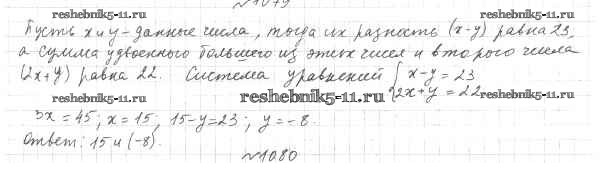 №1079
Пусть x и y - данные числа, тогда их разность (x-y) равна 23,
reshebnik5-11.ru
reshebnik5-11.ru
а сумма удвоенного большего из этих чисел и второго числа
(2x+y) равна 22. Система уравнений { x-y=23
2x+y=22
reshebnik5-11.ru
reshebnik5-11.ru
reshebnik5-11.ru
3x=45; x=15; 15-y=23; y=-8.
Ответ: 15 и (-8).
reshebnik5-11.ru
reshebnik5-11.ru
№1080